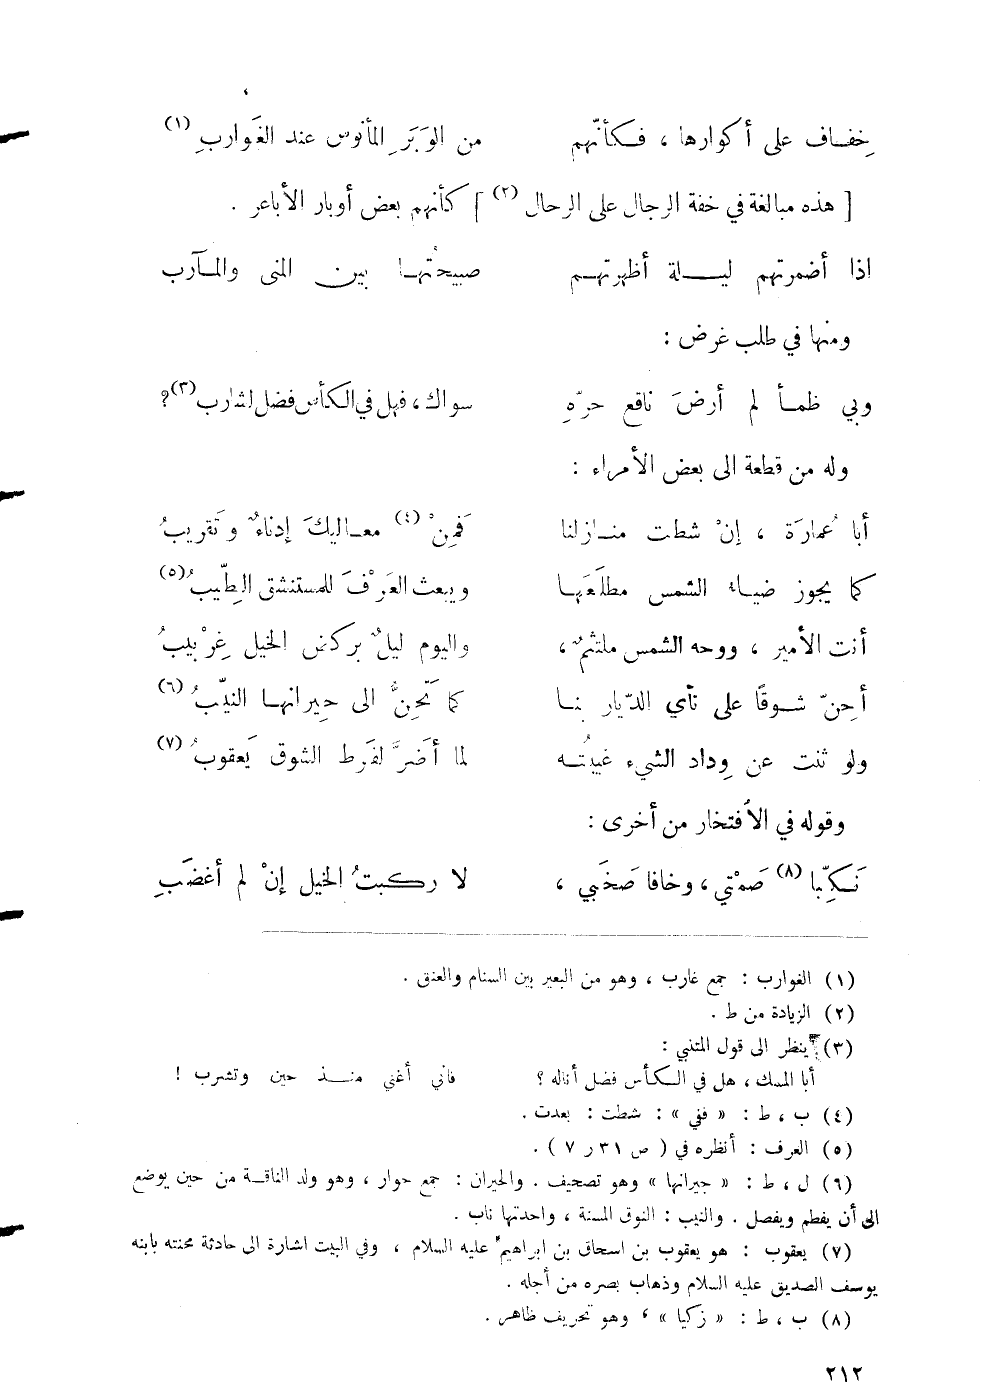 خِفـاف على أكوارها ، فـكأنّهم من الوَبَرِ المأنوس عند الغَواربِ (١)
[ هذه مبالغة في خفة الرجال على الرحال (٢) ] كأنهم بعض أوبار الأباعر .
اذا أضمرتهم ليـــلة أظهرتهـم صبيحتُهـا بين المنى والمـآرب
ومنها في طلب غرض :
وبي ظمـأ لم أرضَ ناقع حرّهِ سواك ، فهل في الكأس فضل لشارب (٣) ؟
وله من قطعة الى بعض الأمراء :
أبا عُمارَة ، إنْ شطت منـازلنا فَمِنْ (٤) معـاليكَ إدناءٌ وتَقريبُ
كما يجوز ضياء الشمس مطلَعَهـا ويبعث العَرْفَ للمستنشق الطِّيبُ (٥)
أنت الأمير ، ووجه الشمس ملتثمٌ ، واليوم ليلٌ بركض الخيل غِرْبيبُ
أحِنّ شـوقًا على نَأي الدّيار بنـا كما تَحِنُّ الى حِيرانهـا النيّبُ (٦)
ولو ثنت عن وِداد الشيء غيبتُـه لما أضَرَّ لفَرط الشوق يَعقوبُ (٧)
وقوله في الأفتخار من أخرى :
نَـكِّبا (٨) صَمْتي ، وخافا صَخَبي ، لا ركبتُ الخيل إنْ لم أغضَبِ
(١) الغوارب : جمع غارب ، وهو من البعير بين السنام والعنق .
(٢) الزيادة من ط .
(٣) ينظر الى قول المتنبي :
أبا المسك ، هل في الـكأس فضل أناله ؟ فاني أغني منـــذ حين وتشرب !
(٤) ب ، ط : « ففي » : شطت : بعدت .
(٥) العرف : أنظره في ( ص ٣١ ر ٧ ) .
(٦) ل ، ط : « جيرانها » وهو تصحيف . والحيران : جمع حوار ، وهو ولد الناقـة من حين يوضع
الى أن يفطم ويفصل . والنيب : النوق المسنة ، واحدتها ناب .
(٧) يعقوب : هو يعقوب بن اسحاق بن ابراهيم عليه السلام ، وفي البيت اشارة الى حادثة محنته بابنه
يوسف الصديق عليه السلام وذهاب بصره من أجله .
(٨) ب ، ط : « زكيا » ، وهو تحريف ظاهر .
٢١٢